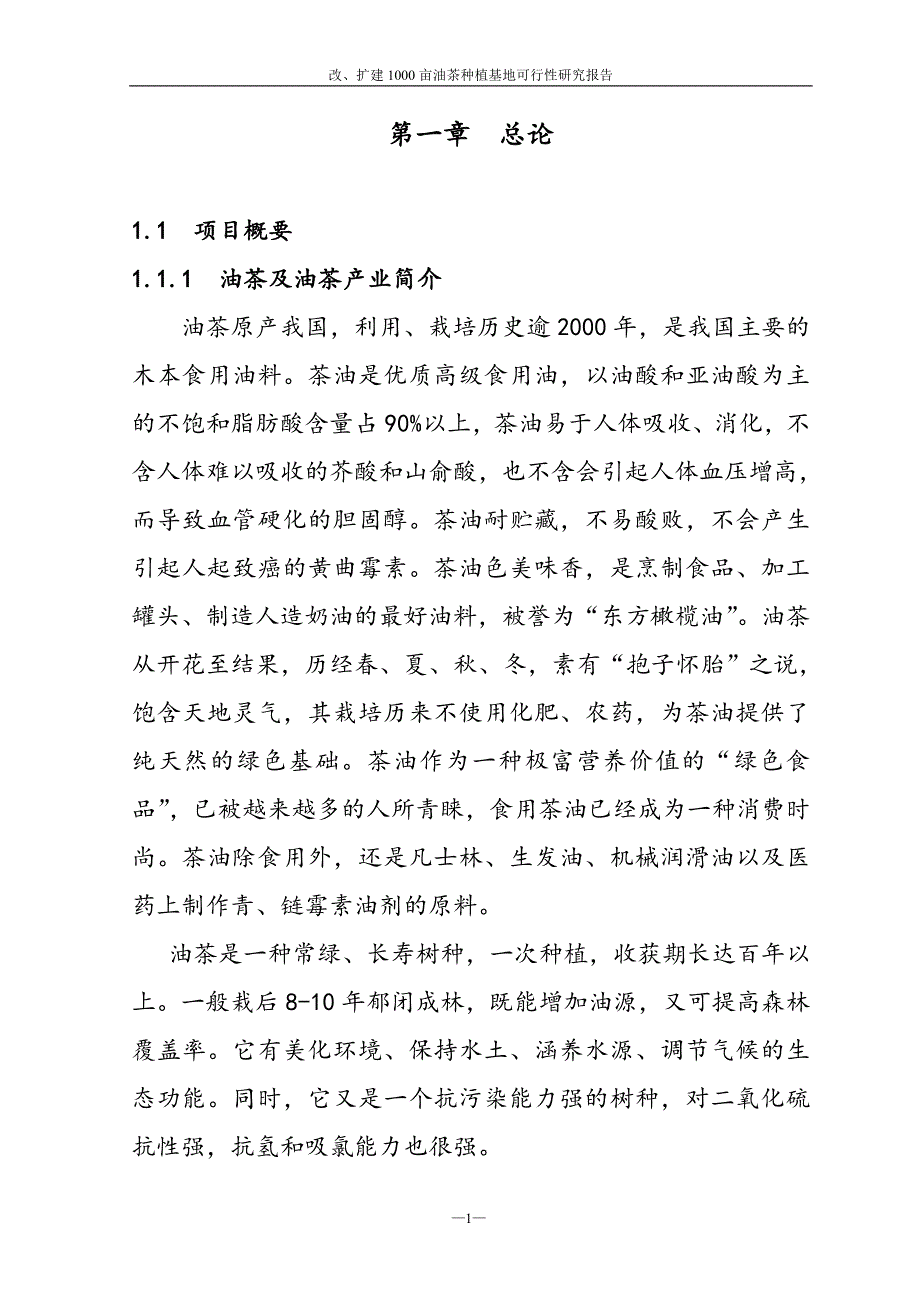 改、扩建 1000 亩油茶种植基地可行性研究报告
第一章　总论
1.1　项目概要
1.1.1　油茶及油茶产业简介
油茶原产我国，利用、栽培历史逾2000年，是我国主要的
木本食用油料。茶油是优质高级食用油，以油酸和亚油酸为主
的不饱和脂肪酸含量占90%以上，茶油易于人体吸收、消化，不
含人体难以吸收的芥酸和山俞酸，也不含会引起人体血压增高，
而导致血管硬化的胆固醇。茶油耐贮藏，不易酸败，不会产生
引起人起致癌的黄曲霉素。茶油色美味香，是烹制食品、加工
罐头、制造人造奶油的最好油料，被誉为“东方橄榄油”。油茶
从开花至结果，历经春、夏、秋、冬，素有“抱子怀胎”之说，
饱含天地灵气，其栽培历来不使用化肥、农药，为茶油提供了
纯天然的绿色基础。茶油作为一种极富营养价值的“绿色食
品”，已被越来越多的人所青睐，食用茶油已经成为一种消费时
尚。茶油除食用外，还是凡士林、生发油、机械润滑油以及医
药上制作青、链霉素油剂的原料。
油茶是一种常绿、长寿树种，一次种植，收获期长达百年以
上。一般栽后8-10年郁闭成林，既能增加油源，又可提高森林
覆盖率。它有美化环境、保持水土、涵养水源、调节气候的生
态功能。同时，它又是一个抗污染能力强的树种，对二氧化硫
抗性强，抗氢和吸氯能力也很强。
—1—